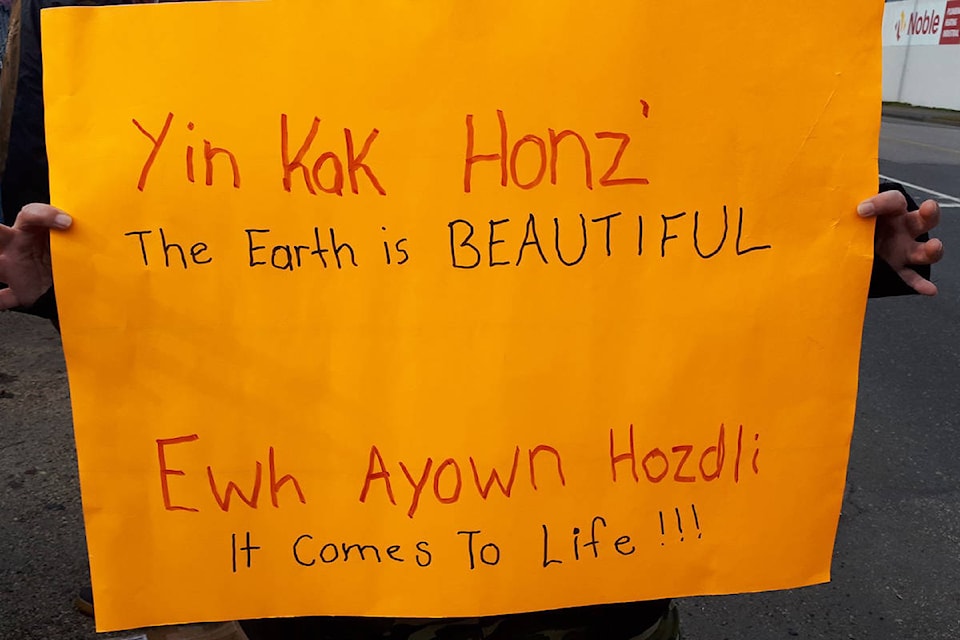 Noble
Yin Kak Honz'
The Earth is BEAUTIFUL
Ewh Ayown Hozdli
It Comes To Life !!!